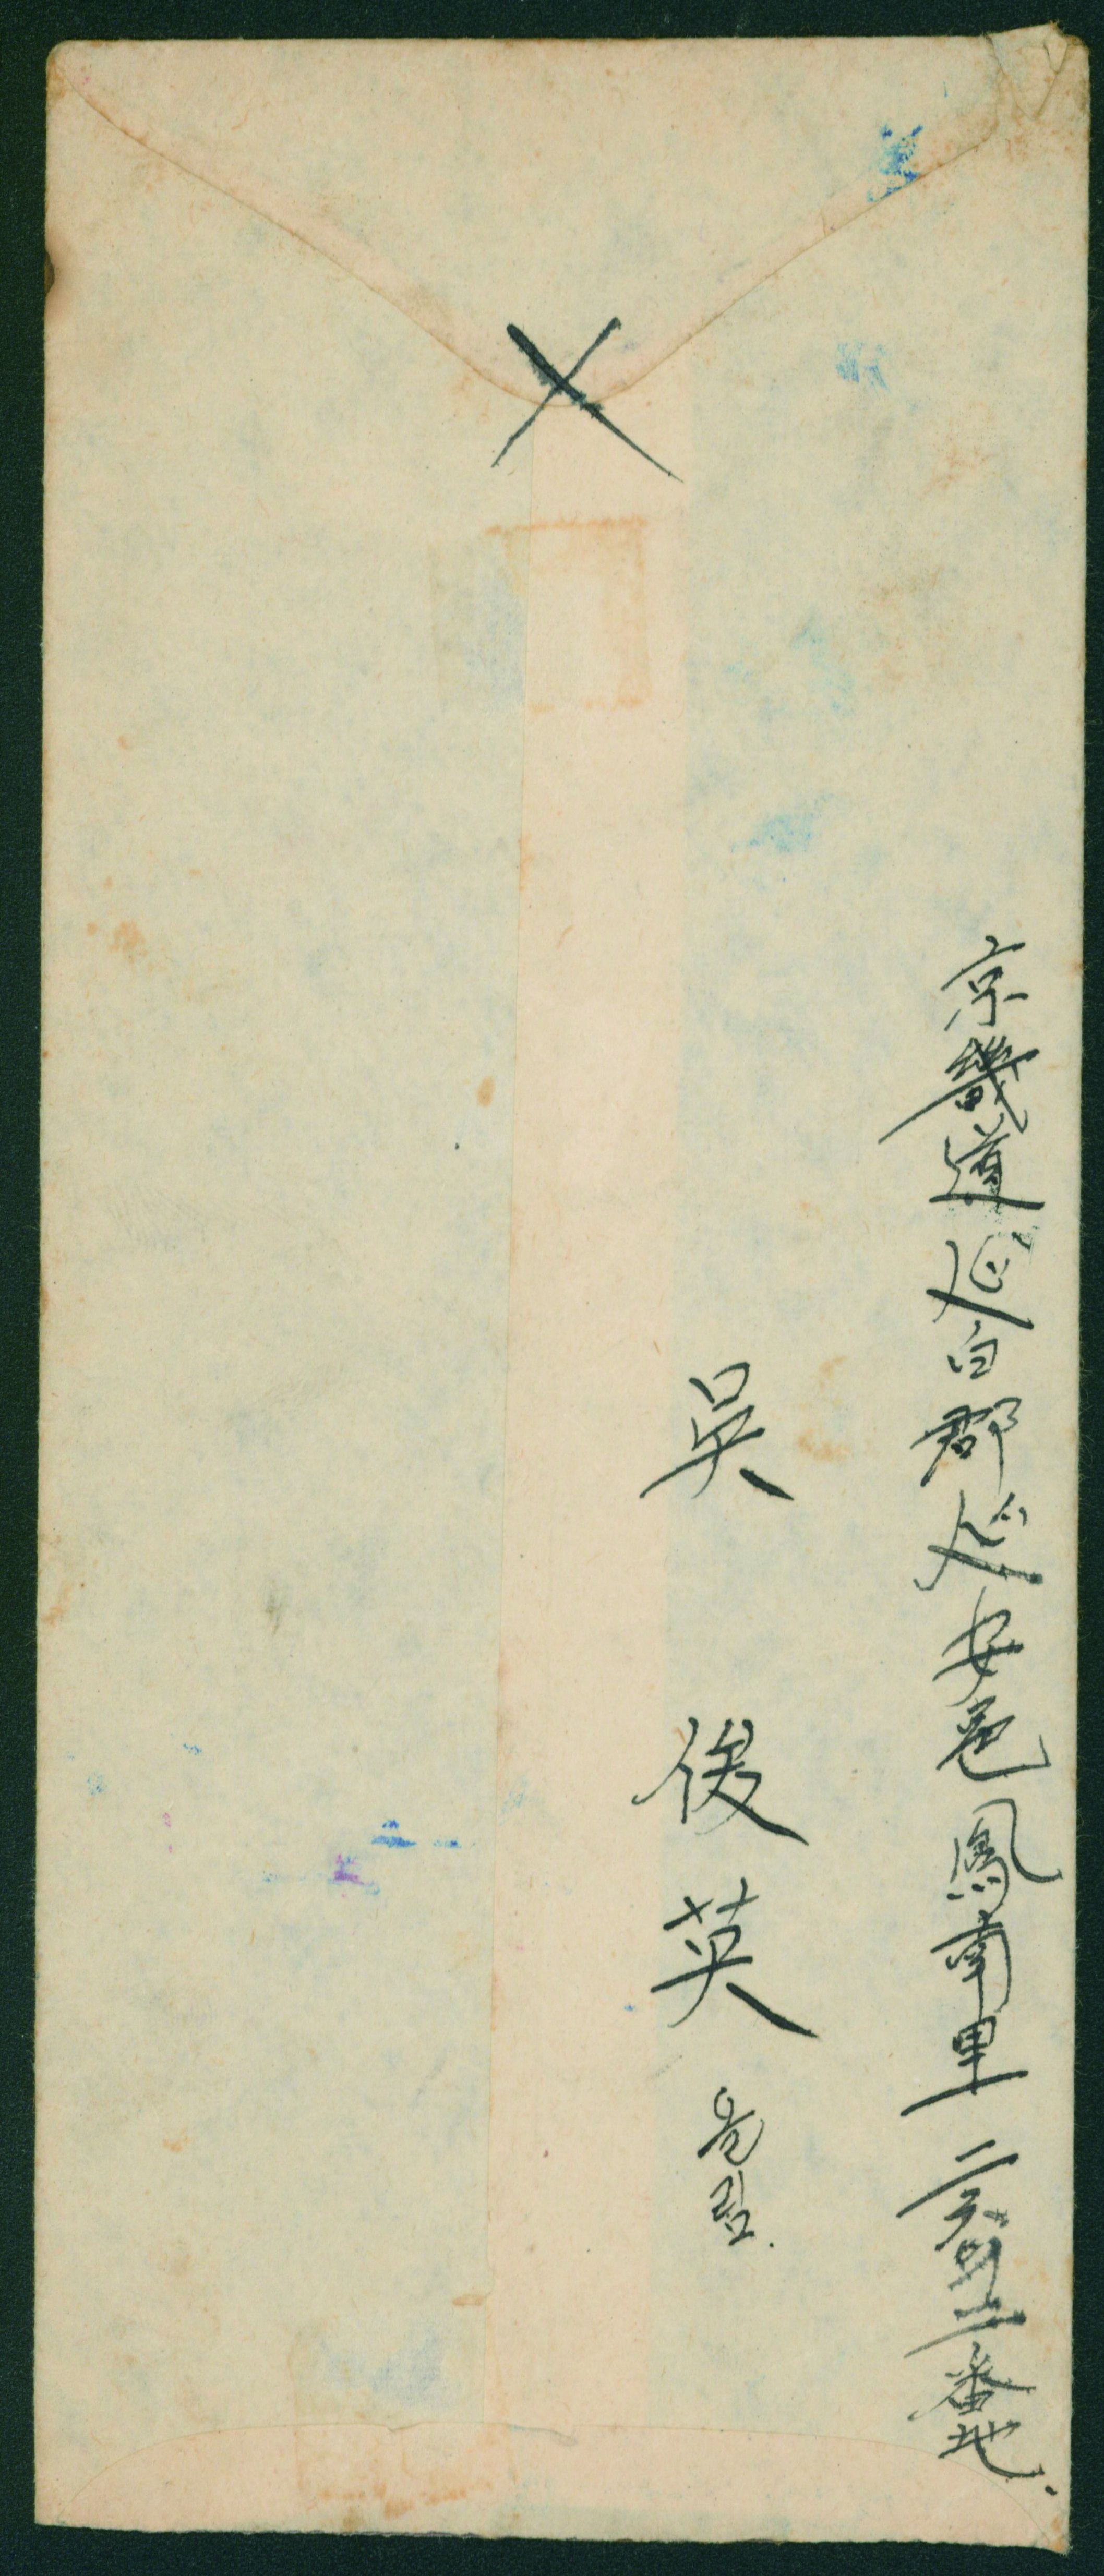 京畿道延白郡延安邑鳳南里 二番地.
吳 俊英 올림.